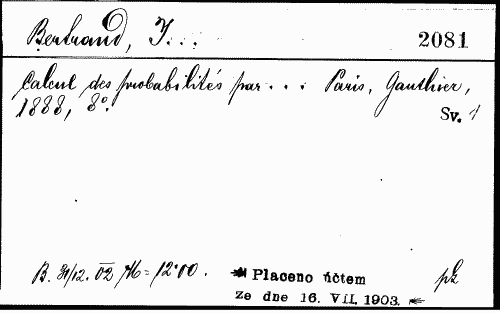 Bertrand, J...
2081
Calcul des probabilités par... Paris, Gauthier,
1888, 8°.
Sv. 1
B. 31/12. 02 M = 12·00.
Placeno účtem
ze dne 16. VII. 1903.